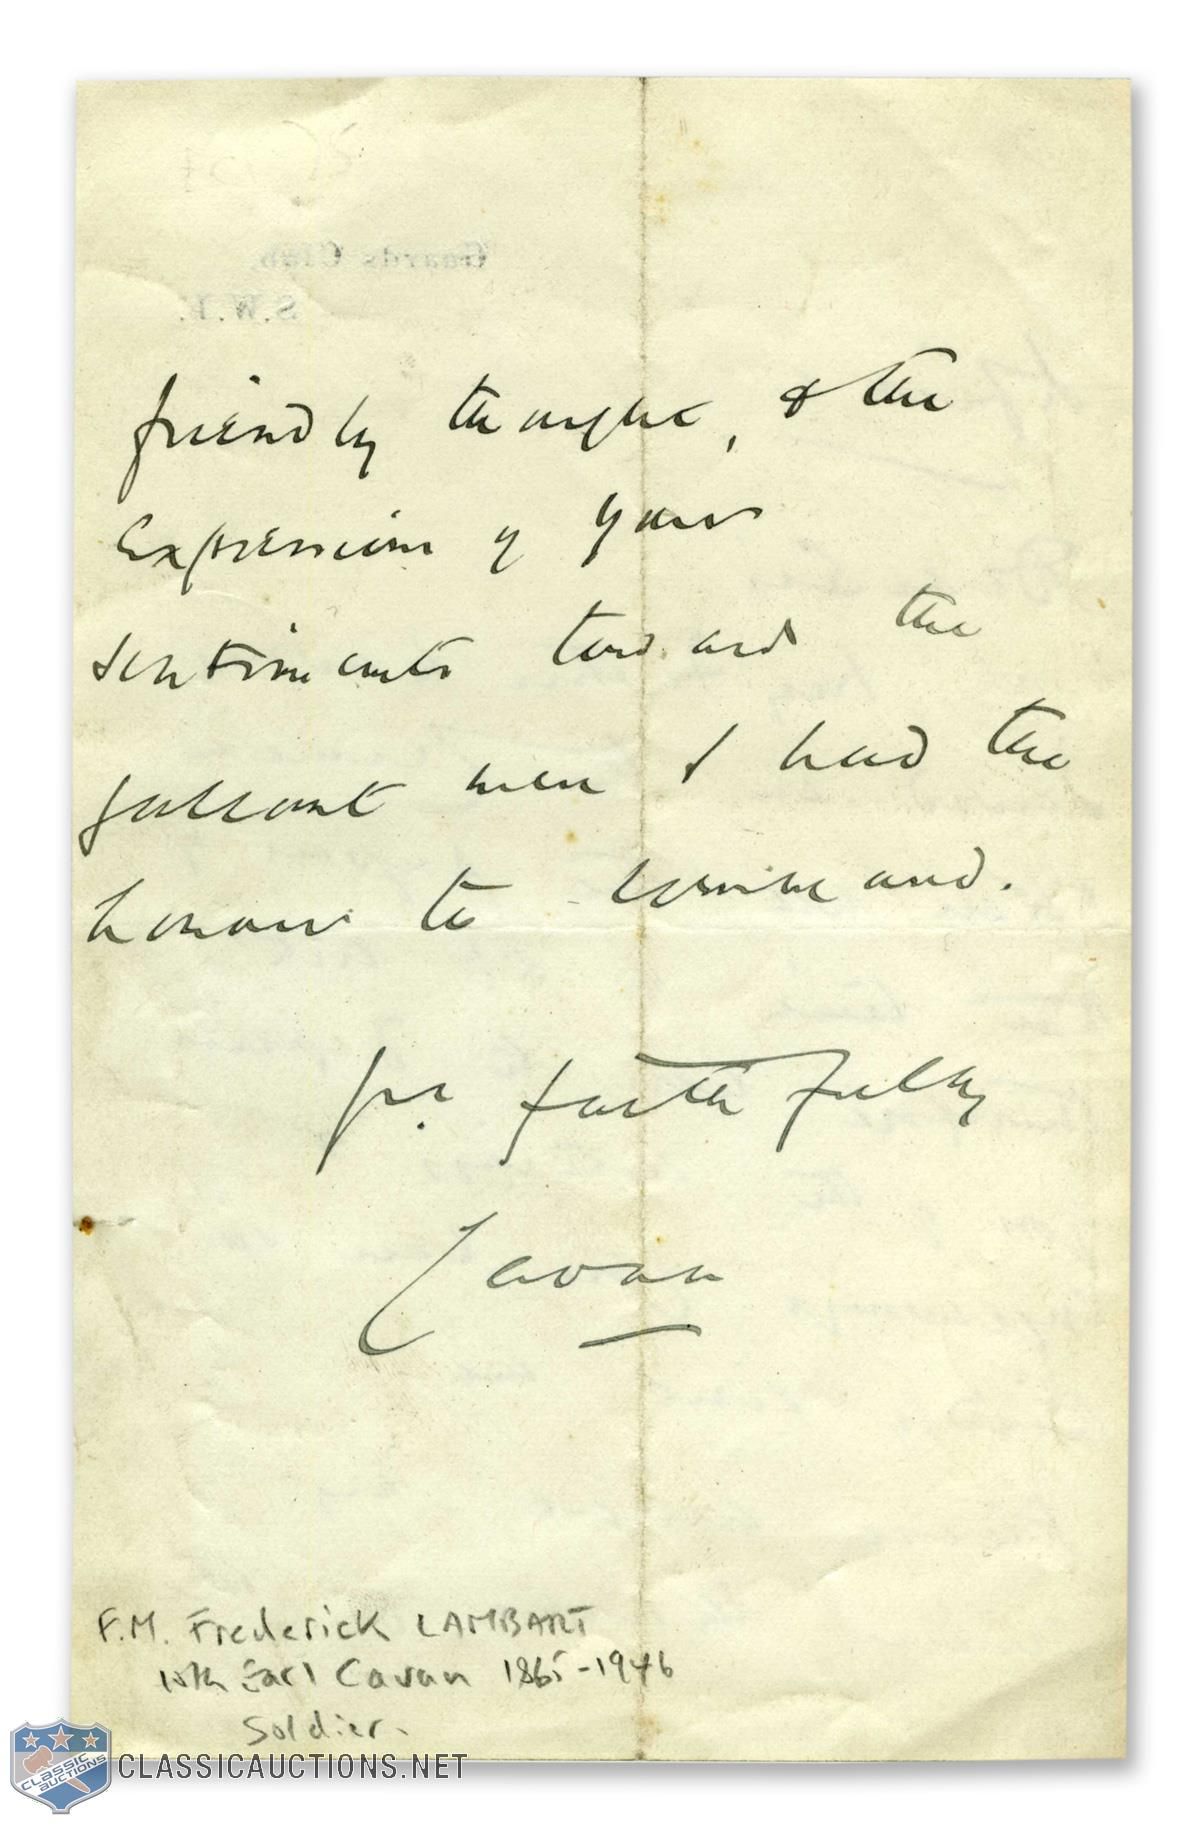 Guards Club,
S.W.1.
friendly thought, & the
Expression of your
sentiments toward the
gallant men I had the
honour to command.
Yrs. faithfully
Cavan
F.M. Frederick LAMBART
10th Earl Cavan 1865-1946
Soldier.
CLASSIC AUCTIONS
CLASSICAUCTIONS.NET